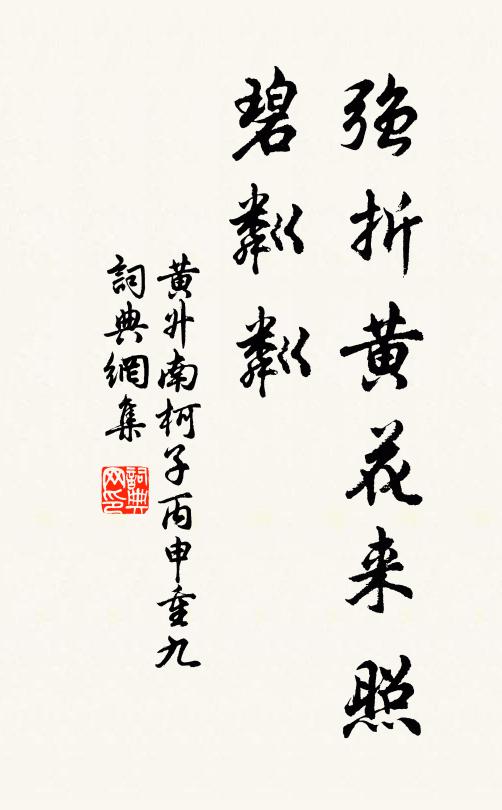 强折黄花来照
碧粼粼
黄升南柯子丙申重九
詞典網集
詞典网印